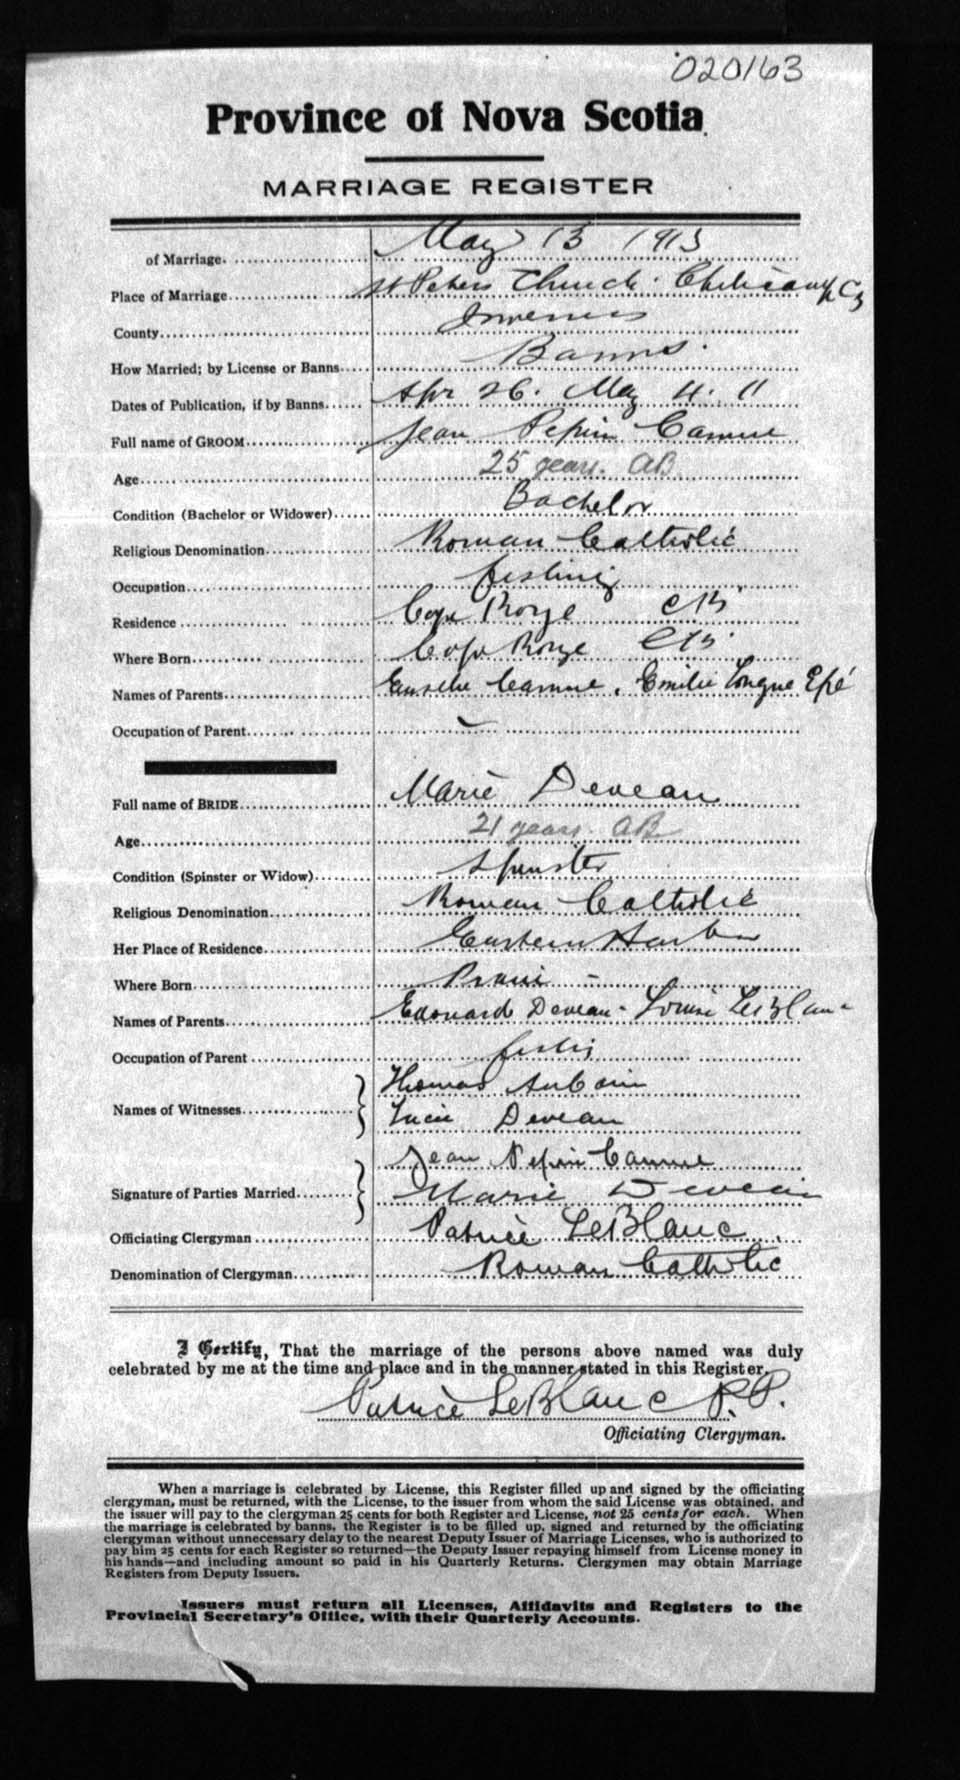 020163
Province of Nova Scotia
MARRIAGE REGISTER
of Marriage. May 13 1913
Place of Marriage St Peters Church.
County Inverness
How Married; by License or Banns Banns.
Dates of Publication, if by Banns Apr 26. May 4. 11
Full name of GROOM Jean Pepin Camus
Age 25 years. AB
Condition (Bachelor or Widower) Bachelor
Religious Denomination Roman Catholic
Occupation fishing
Residence Cap Rouge CB
Where Born Cap Rouge CB
Names of Parents Camus. Emilie Longue Epé
Occupation of Parent
Full name of BRIDE Marie Deveau
Age 21 years. AB
Condition (Spinster or Widow) Spinster
Religious Denomination Roman Catholic
Her Place of Residence Eastern Harbor
Where Born
Names of Parents Edouard Deveau - Louise LeBlanc
Occupation of Parent
Names of Witnesses Thomas AuCoin
Lucie Deveau
Signature of Parties Married Jean Pepin Camus
Marie Deveau
Officiating Clergyman Patrice LeBlanc
Denomination of Clergyman Roman Catholic
I Certify, That the marriage of the persons above named was duly
celebrated by me at the time and place and in the manner stated in this Register.
Patrice LeBlanc P.P.
Officiating Clergyman.
When a marriage is celebrated by License, this Register filled up and signed by the officiating
clergyman, must be returned, with the License, to the issuer from whom the said License was obtained, and
the issuer will pay to the clergyman 25 cents for both Register and License, not 25 cents for each. When
the marriage is celebrated by banns, the Register is to be filled up, signed and returned by the officiating
clergyman without unnecessary delay to the nearest Deputy Issuer of Marriage Licenses, who is authorized to
pay him 25 cents for each Register so returned—the Deputy Issuer repaying himself from License money in
his hands—and including amount so paid in his Quarterly Returns. Clergymen may obtain Marriage
Registers from Deputy Issuers.
Issuers must return all Licenses, Affidavits and Registers to the
Provincial Secretary's Office, with their Quarterly Accounts.